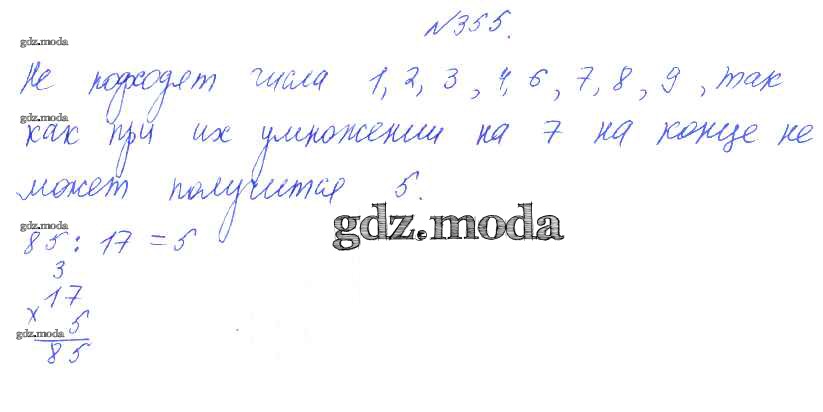 №355.
gdz.moda
Не подходят числа 1, 2, 3, 4, 6, 7, 8, 9, так
gdz.moda
как при их умножении на 7 на конце не
может получится 5.
gdz.moda
gdz.moda
85 : 17 = 5
3
17
× 5
gdz.moda
85